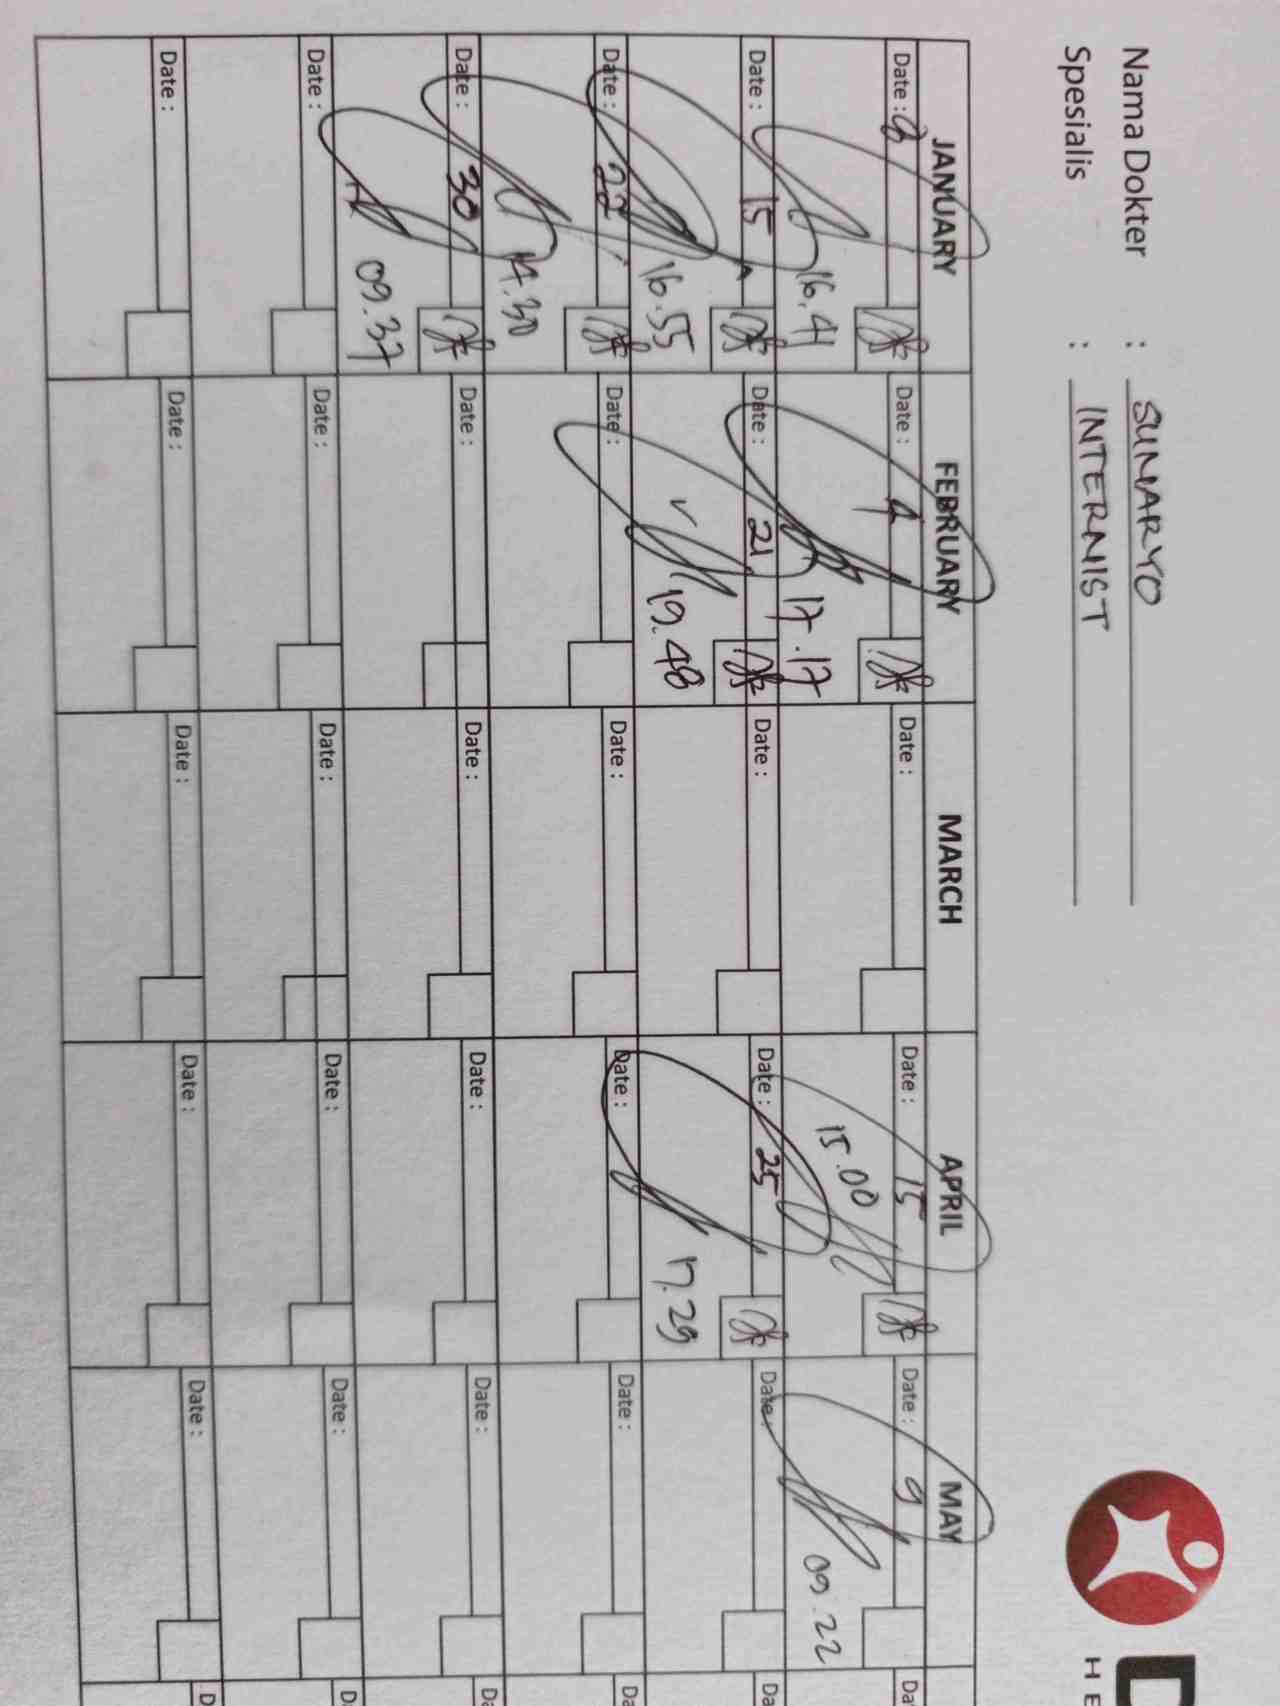 Nama Dokter : SUNARYO
Spesialis : INTERNIST
HE
JANUARY FEBRUARY MARCH APRIL MAY
Date : 8 Date : 4 Date : Date : 15 Date : 9 Da
16.41 17.17 15.00 09.22
Date : 15 Date : 21 Date : Date : 25 Date : Da
16.55 19.48 17.29
Date : 22 Date : Date : Date : Date : Da
14.30
Date : 30 Date : Date : Date : Date : Da
09.37
Date : Date : Date : Date : Date : D
Date : Date : Date : Date : Date : D